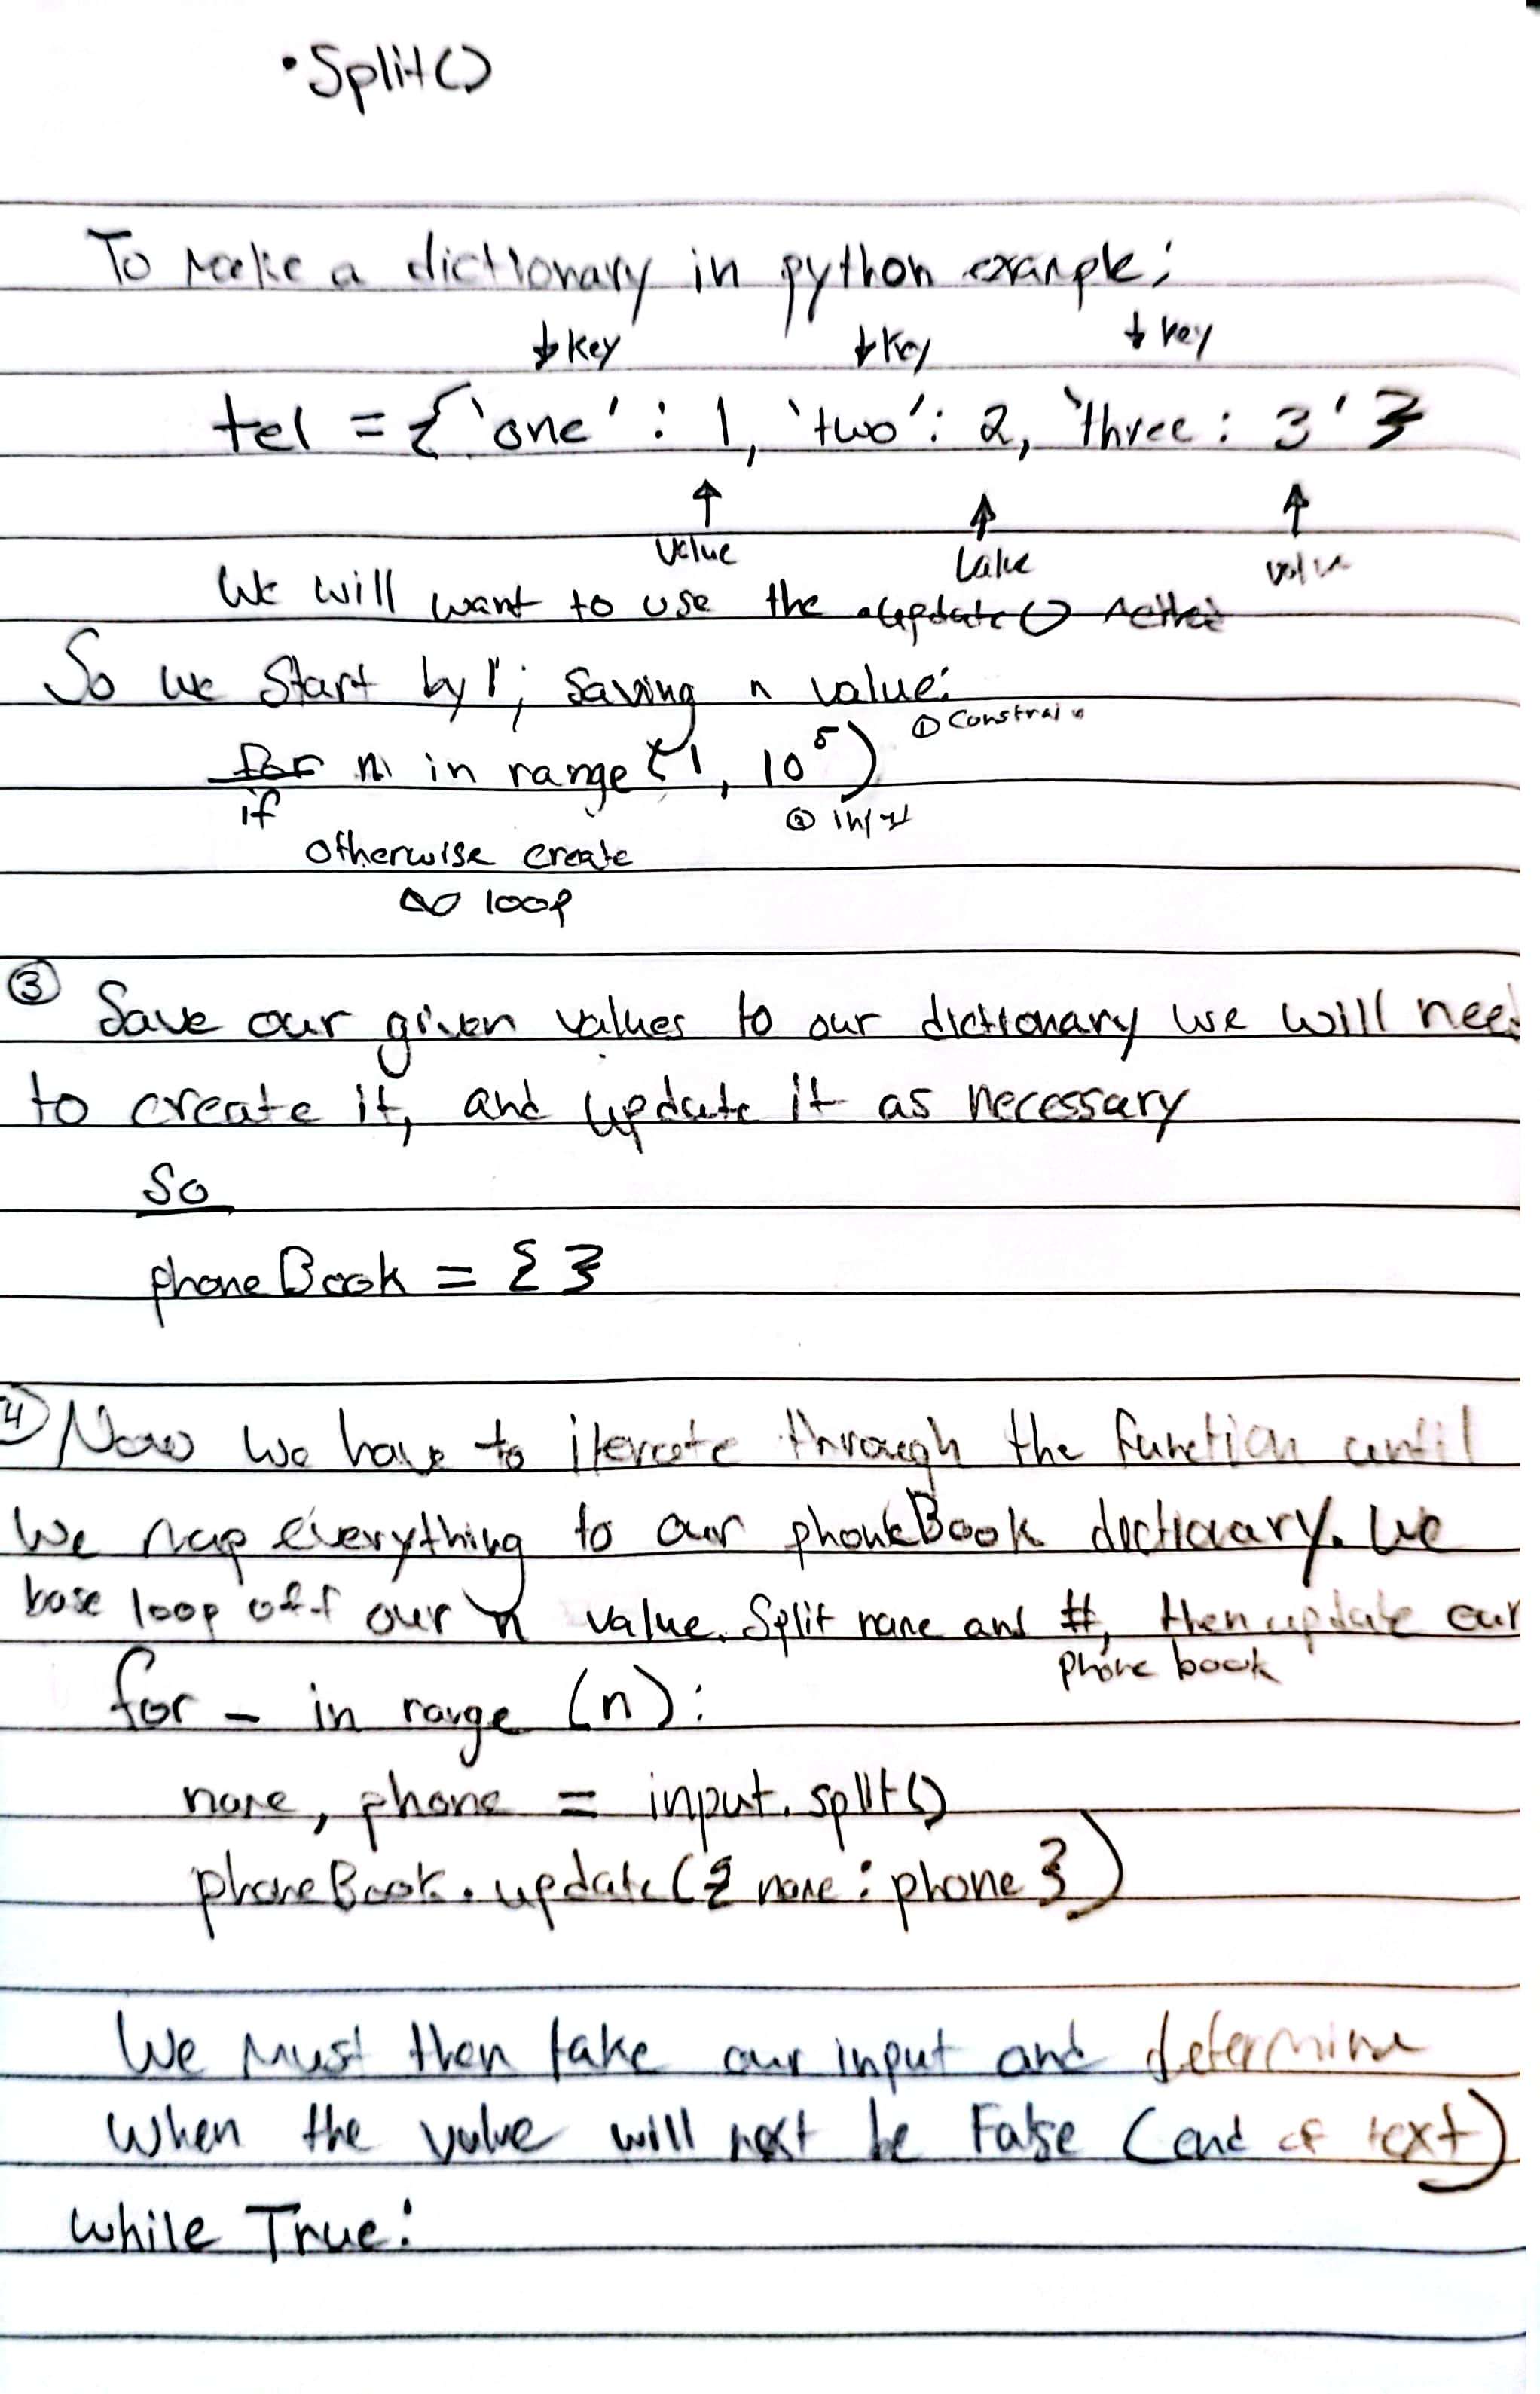 • Split()
To make a dictionary in python example:
↓ key ↓ key ↓ key
tel = {'one' : 1, 'two' : 2, 'three : 3'}
↑ ↑ ↑
value value value
We will want to use the .update()
So we start by 1; saving n value:
① Constrain
for n in range (1, 10⁵)
if
② input
otherwise create
∞ loop
③ Save our given values to our dictionary we will need
to create it, and update it as necessary
So
phoneBook = {}
④ Now we have to iterate through the function until
we map everything to our phoneBook dictionary. We
base loop off our n value. Split name and #, then update our
phone book
for _ in range (n):
name, phone = input.split()
phoneBook.update({name : phone})
We must then take our input and determine
when the value will be False (end of text)
while True: